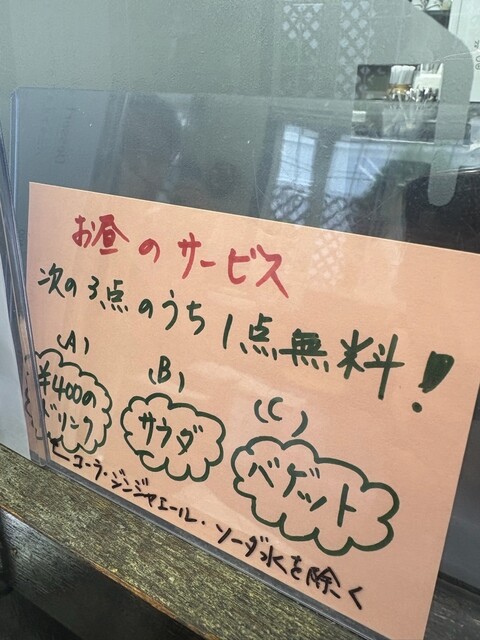 お昼のサービス
次の3点のうち1点無料!
(A)
¥400の
ドリンク
(B)
サラダ
(C)
バゲット
コーラ・ジンジャエール・ソーダ水を除く